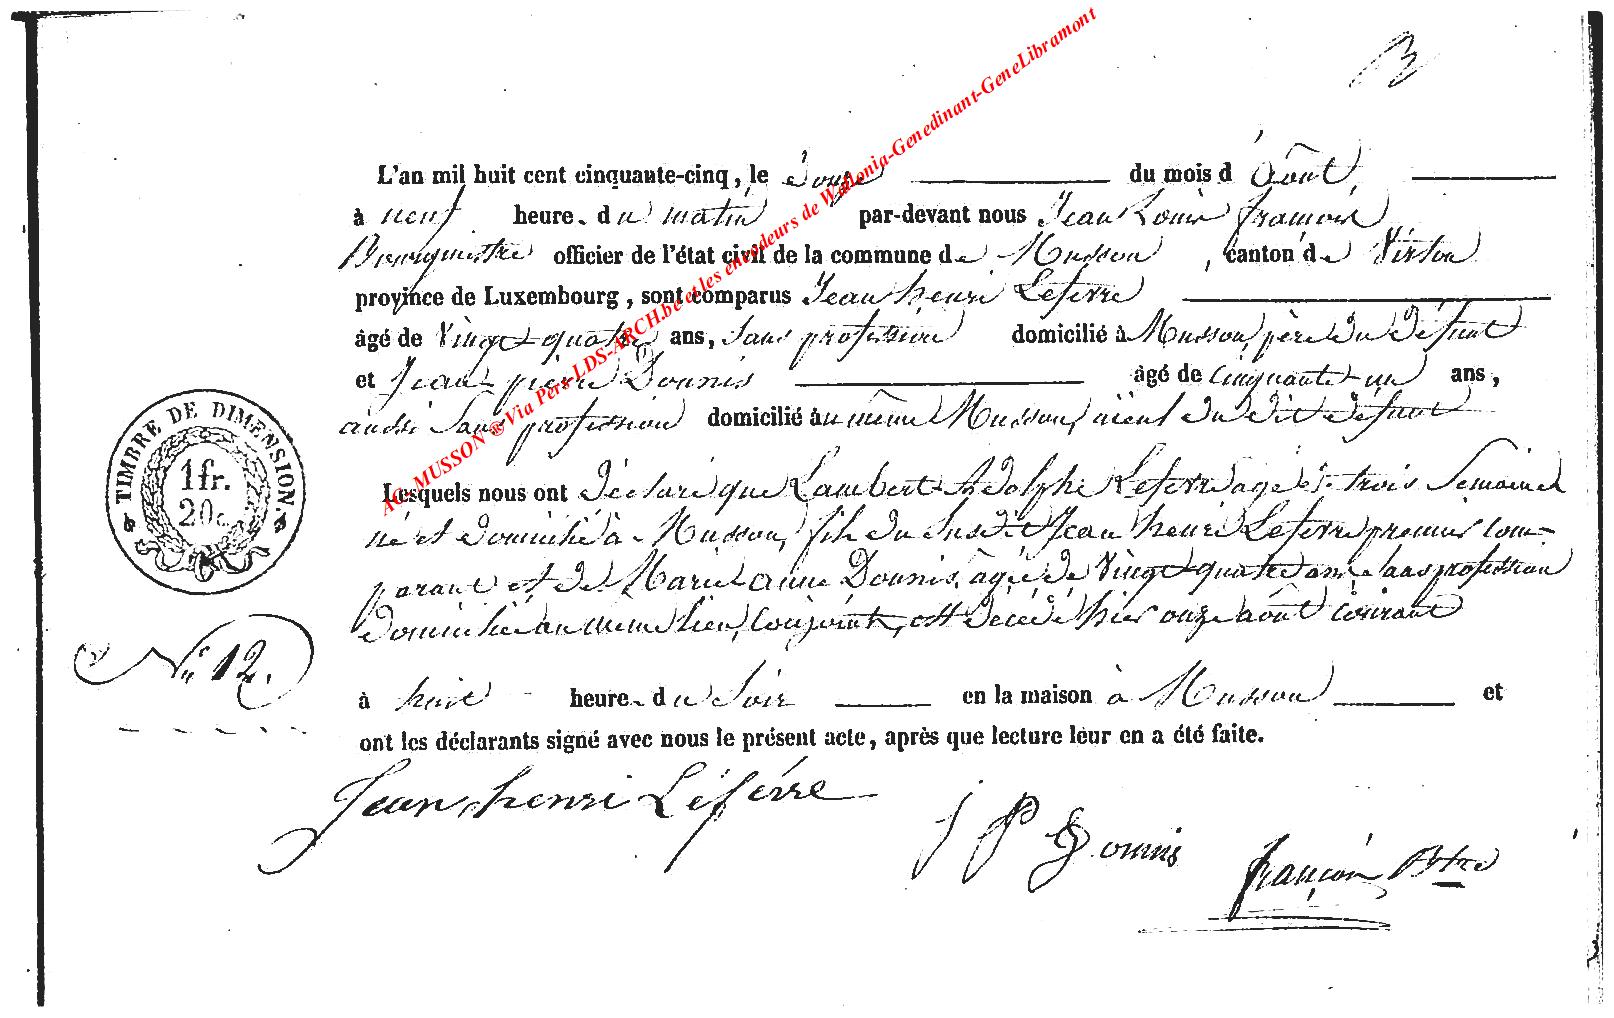 B
L'an mil huit cent cinquante-cinq, le douze du mois d'Août,
à neuf heure. du matin par-devant nous Jean Louis françois
Bourgmestre officier de l'état civil de la commune de Musson, canton de Virton
province de Luxembourg, sont comparus Jean henri Lefevre
âgé de Vingt-quatre ans, Sans profession domicilié à Musson, père du défunt
et Jean-pierre Dounis âgé de cinquante-un ans,
aussi Sans profession domicilié au même Musson, aïeul du dit défunt
Lesquels nous ont déclaré que Lambert-Adolphe Lefevre agé de trois Semaines
né et domicilié à Musson, fils du susdit Jean henri Lefevre premier com-
parant et de Marie anne Dounis, âgée de Vingt-quatre ans, sans profession
domiciliée au même lieu, conjoints, est décédé hier onze août courant
à huit heure. du Soir en la maison à Musson et
ont les déclarants signé avec nous le présent acte, après que lecture leur en a été faite.
Jean henri Léfévre
J P Dounis
françois Btre
TIMBRE DE DIMENSION.
1 fr.
20 c.
N° 12.
AC. MUSSON @ Via Pers LDS-ARCH.be et les encodeurs de Wallonia-Genedinant-GeneLibramont